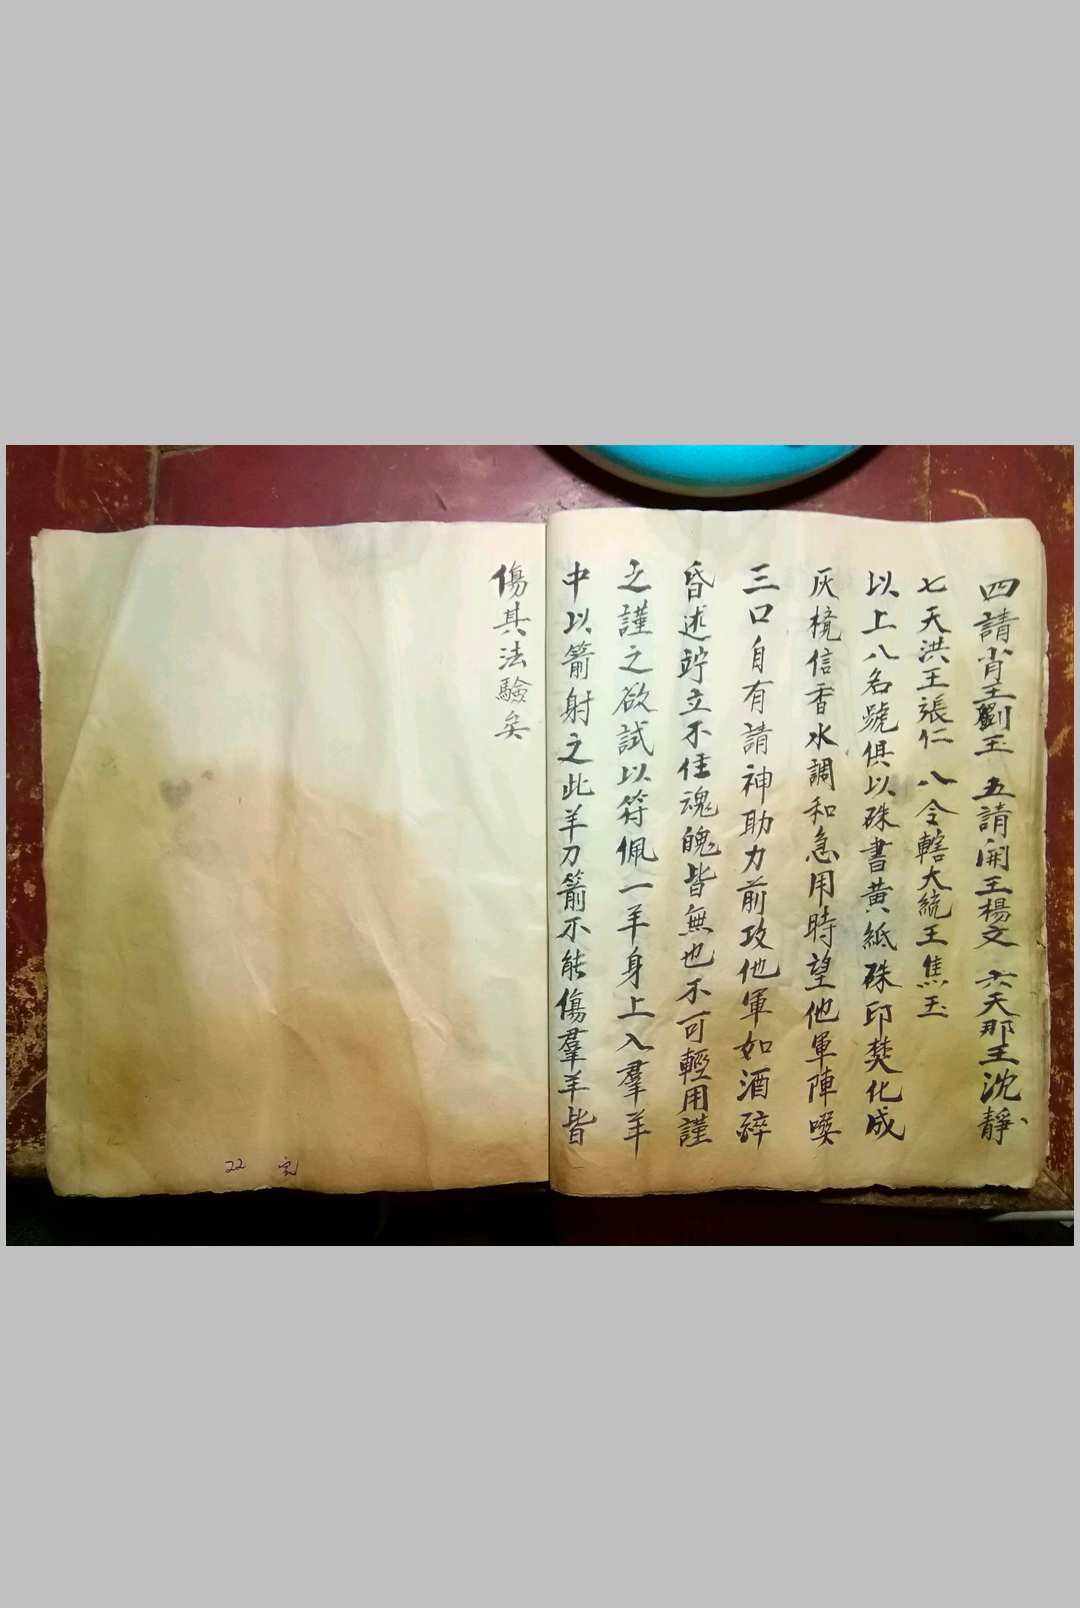 四請肖王劉玉 五請開王楊文 六天那王沈靜
七天洪王張仁 八令轄大統王焦玉
以上八名號俱以硃書黄紙硃印焚化成
灰攪信香水調和急用時望他軍陣噀
三口自有請神助力前攻他軍如酒醉
昏迷竚立不住魂魄皆無也不可輕用謹
之謹之欲試以符佩一羊身上入羣羊
中以箭射之此羊刀箭不能傷羣羊皆
傷其法驗矣
22 完